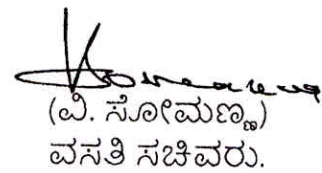 (ವಿ. ಸೋಮಣ್ಣ)
ವಸತಿ ಸಚಿವರು.